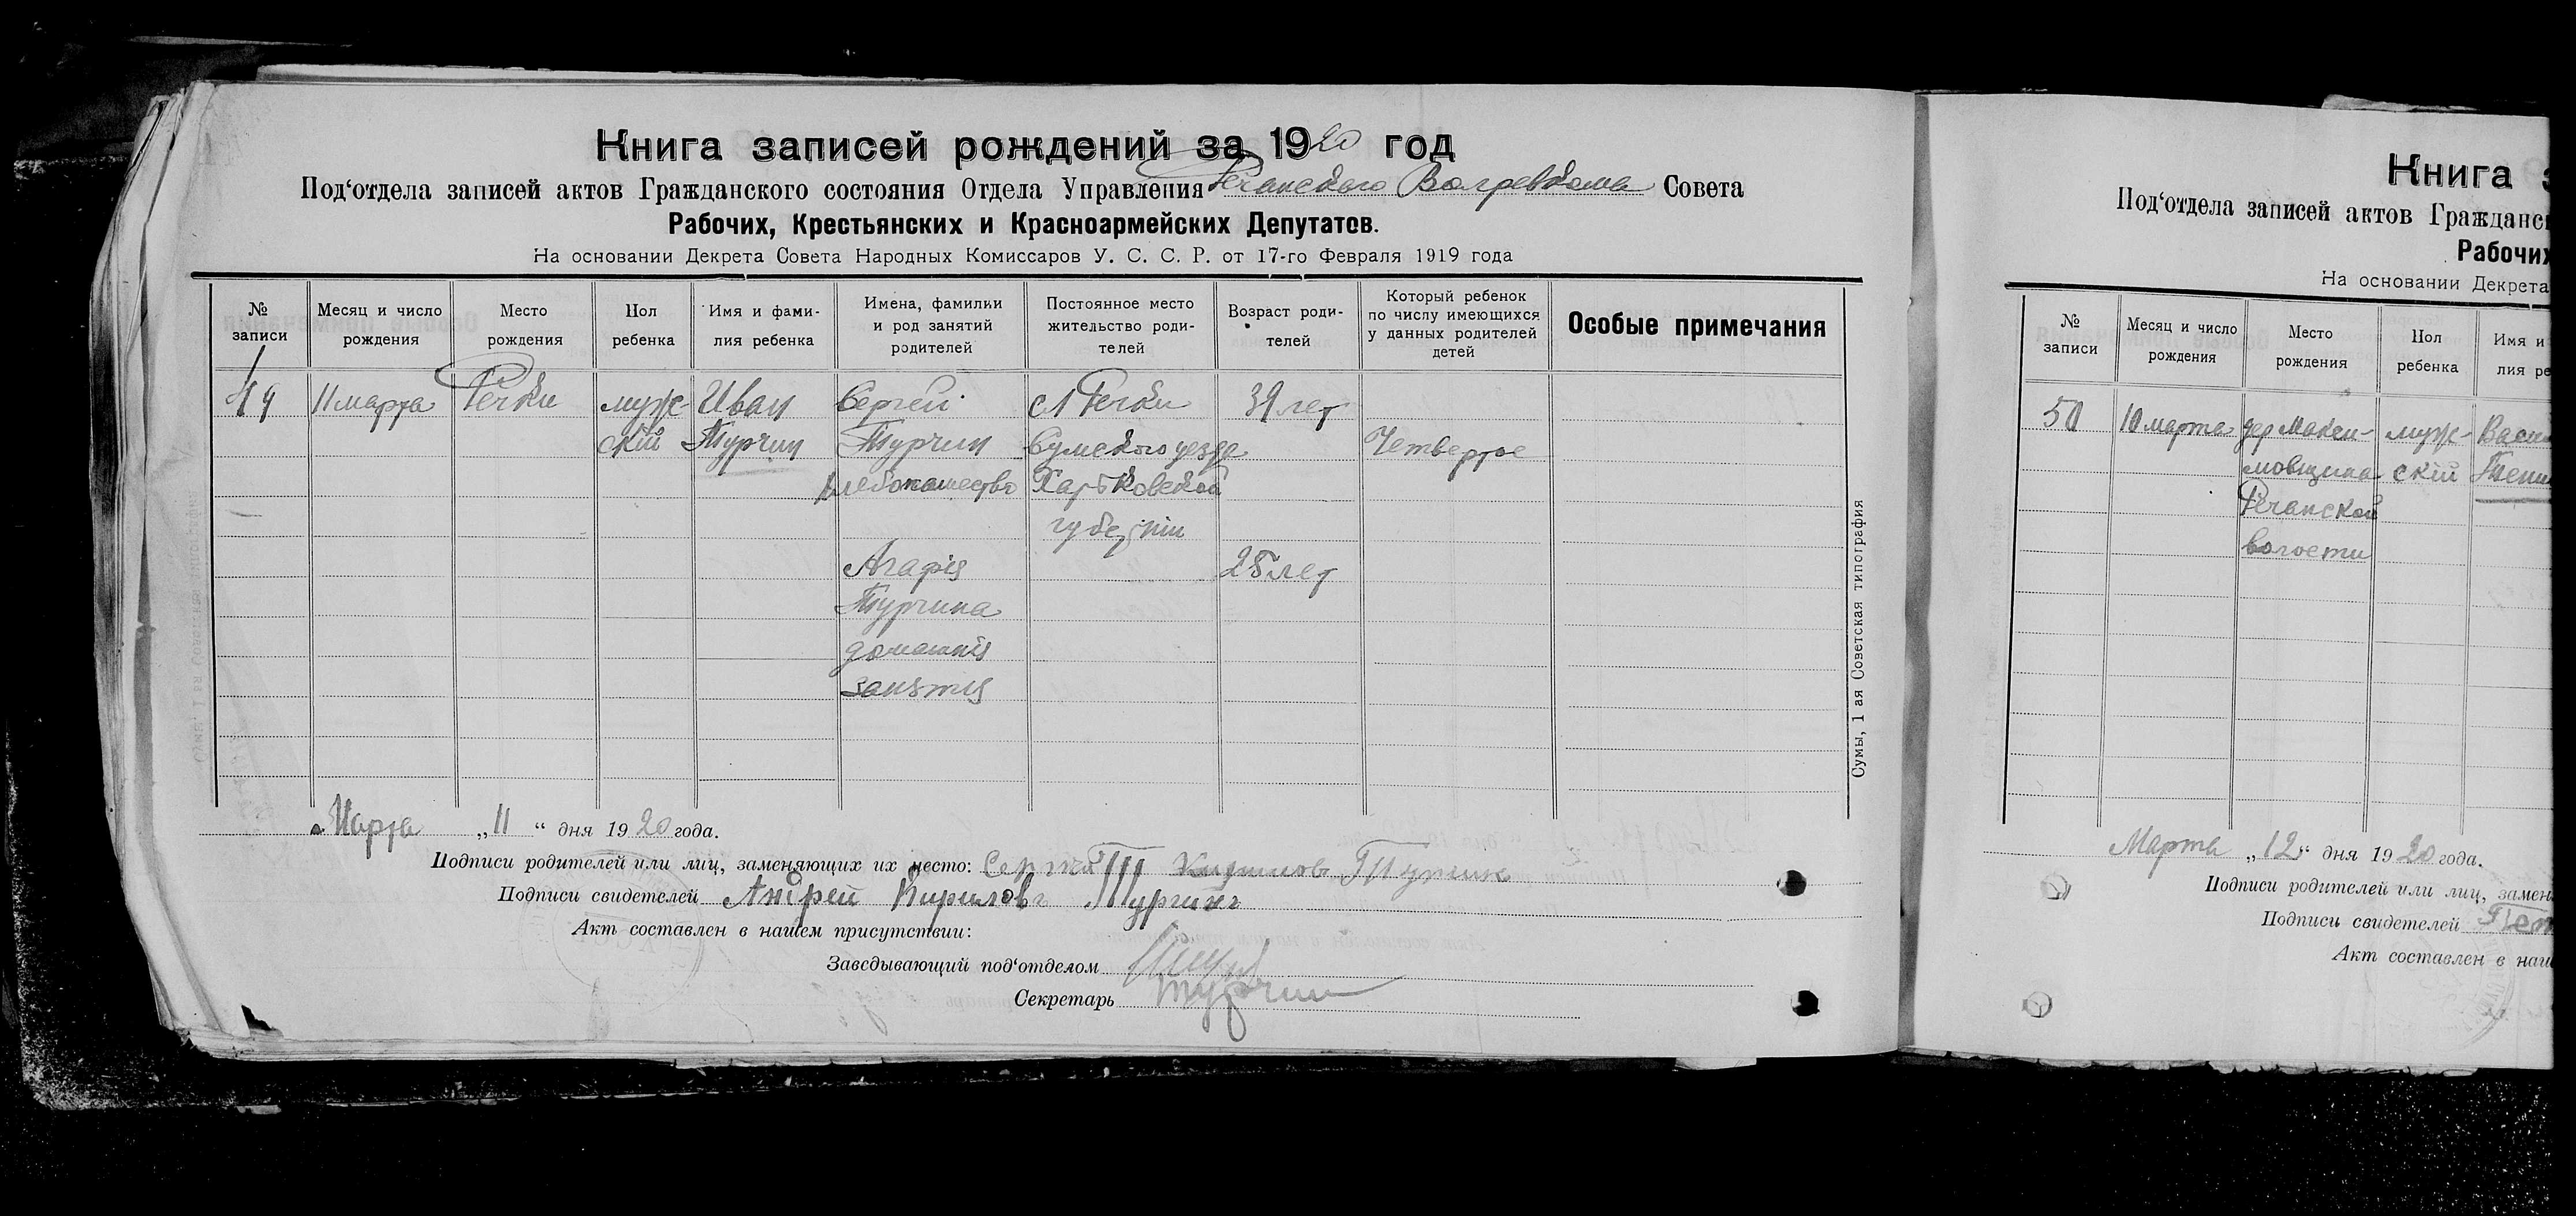 Книга записей рождений за 1920 год
Под‘отдела записей актов Гражданского состояния Отдела Управления Речанского Волревкома Совета
Рабочих, Крестьянских и Красноармейских Депутатов.
На основании Декрета Совета Народных Комиссаров У. С. С. Р. от 17-го Февраля 1919 года
№ записи
Месяц и число рождения
Место рождения
Пол ребенка
Имя и фами-
лия ребенка
Имена, фамилии
и род занятий
родителей
Постоянное место
жительство роди-
телей
Возраст роди-
телей
Который ребенок
по числу имеющихся
у данных родителей
детей
Особые примечания
49
11 марта
Речки
муж-
скій
Иван
Турчин
Сергей
Турчин
хлебопашество
сл Речки
Сумского уезда
Харьковской
губерніи
39 лет
Четвертое
Агафія
Турчина
домашнія
занятія
28 лет
Сумы, 1 ая Советская типография
Марта „11“ дня 1920 года.
Подписи родителей или лиц, заменяющих их место: Сергей Турчин
Подписи свидетелей Андрей Кириловъ Турчинъ
Акт составлен в нашем присутствии:
Заведывающий под‘отделом
Секретарь Турчин
Книга
Под‘отдела записей актов Гражданс
Рабочих
На основании Декрета
№ записи
Месяц и число рождения
Место рождения
Пол ребенка
Имя и
лия ре
50
10 марта
дер Макси-
мовщина
Речанской
волости
муж-
скій
Васи
Марта „12“ дня 1920 года.
Подписи родителей или лиц, замен
Подписи свидетелей
Акт составлен в наш